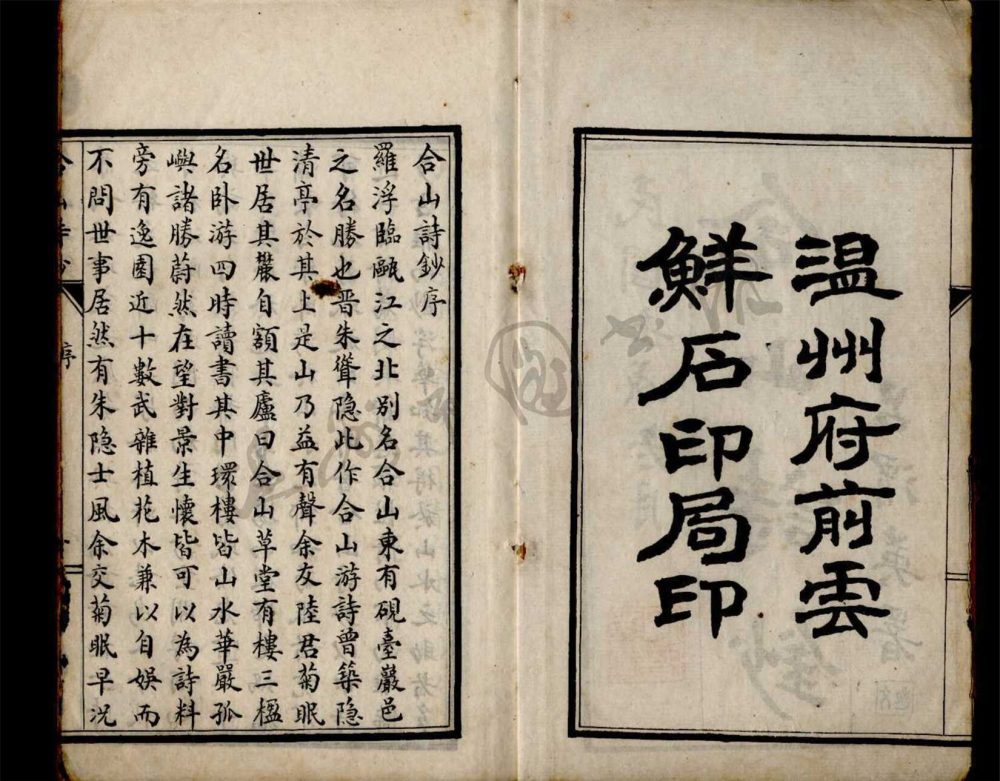 溫州府前雲
鮮石印局印
合山詩鈔序
羅浮臨甌江之北別名合山東有硯臺巖邑
之名勝也晋朱聳隐此作合山游詩曾築隐
清亭於其上是山乃益有聲余友陸君菊眠
世居其巖自額其廬曰合山草堂有樓三楹
名卧游四時讀書其中環樓皆山水華嚴孤
嶼諸勝蔚然在望對景生懷皆可以為詩料
旁有逸園近十數武雜植花木兼以自娛而
不問世事居然有朱隐士風余交菊眠早況
合山詩鈔
序